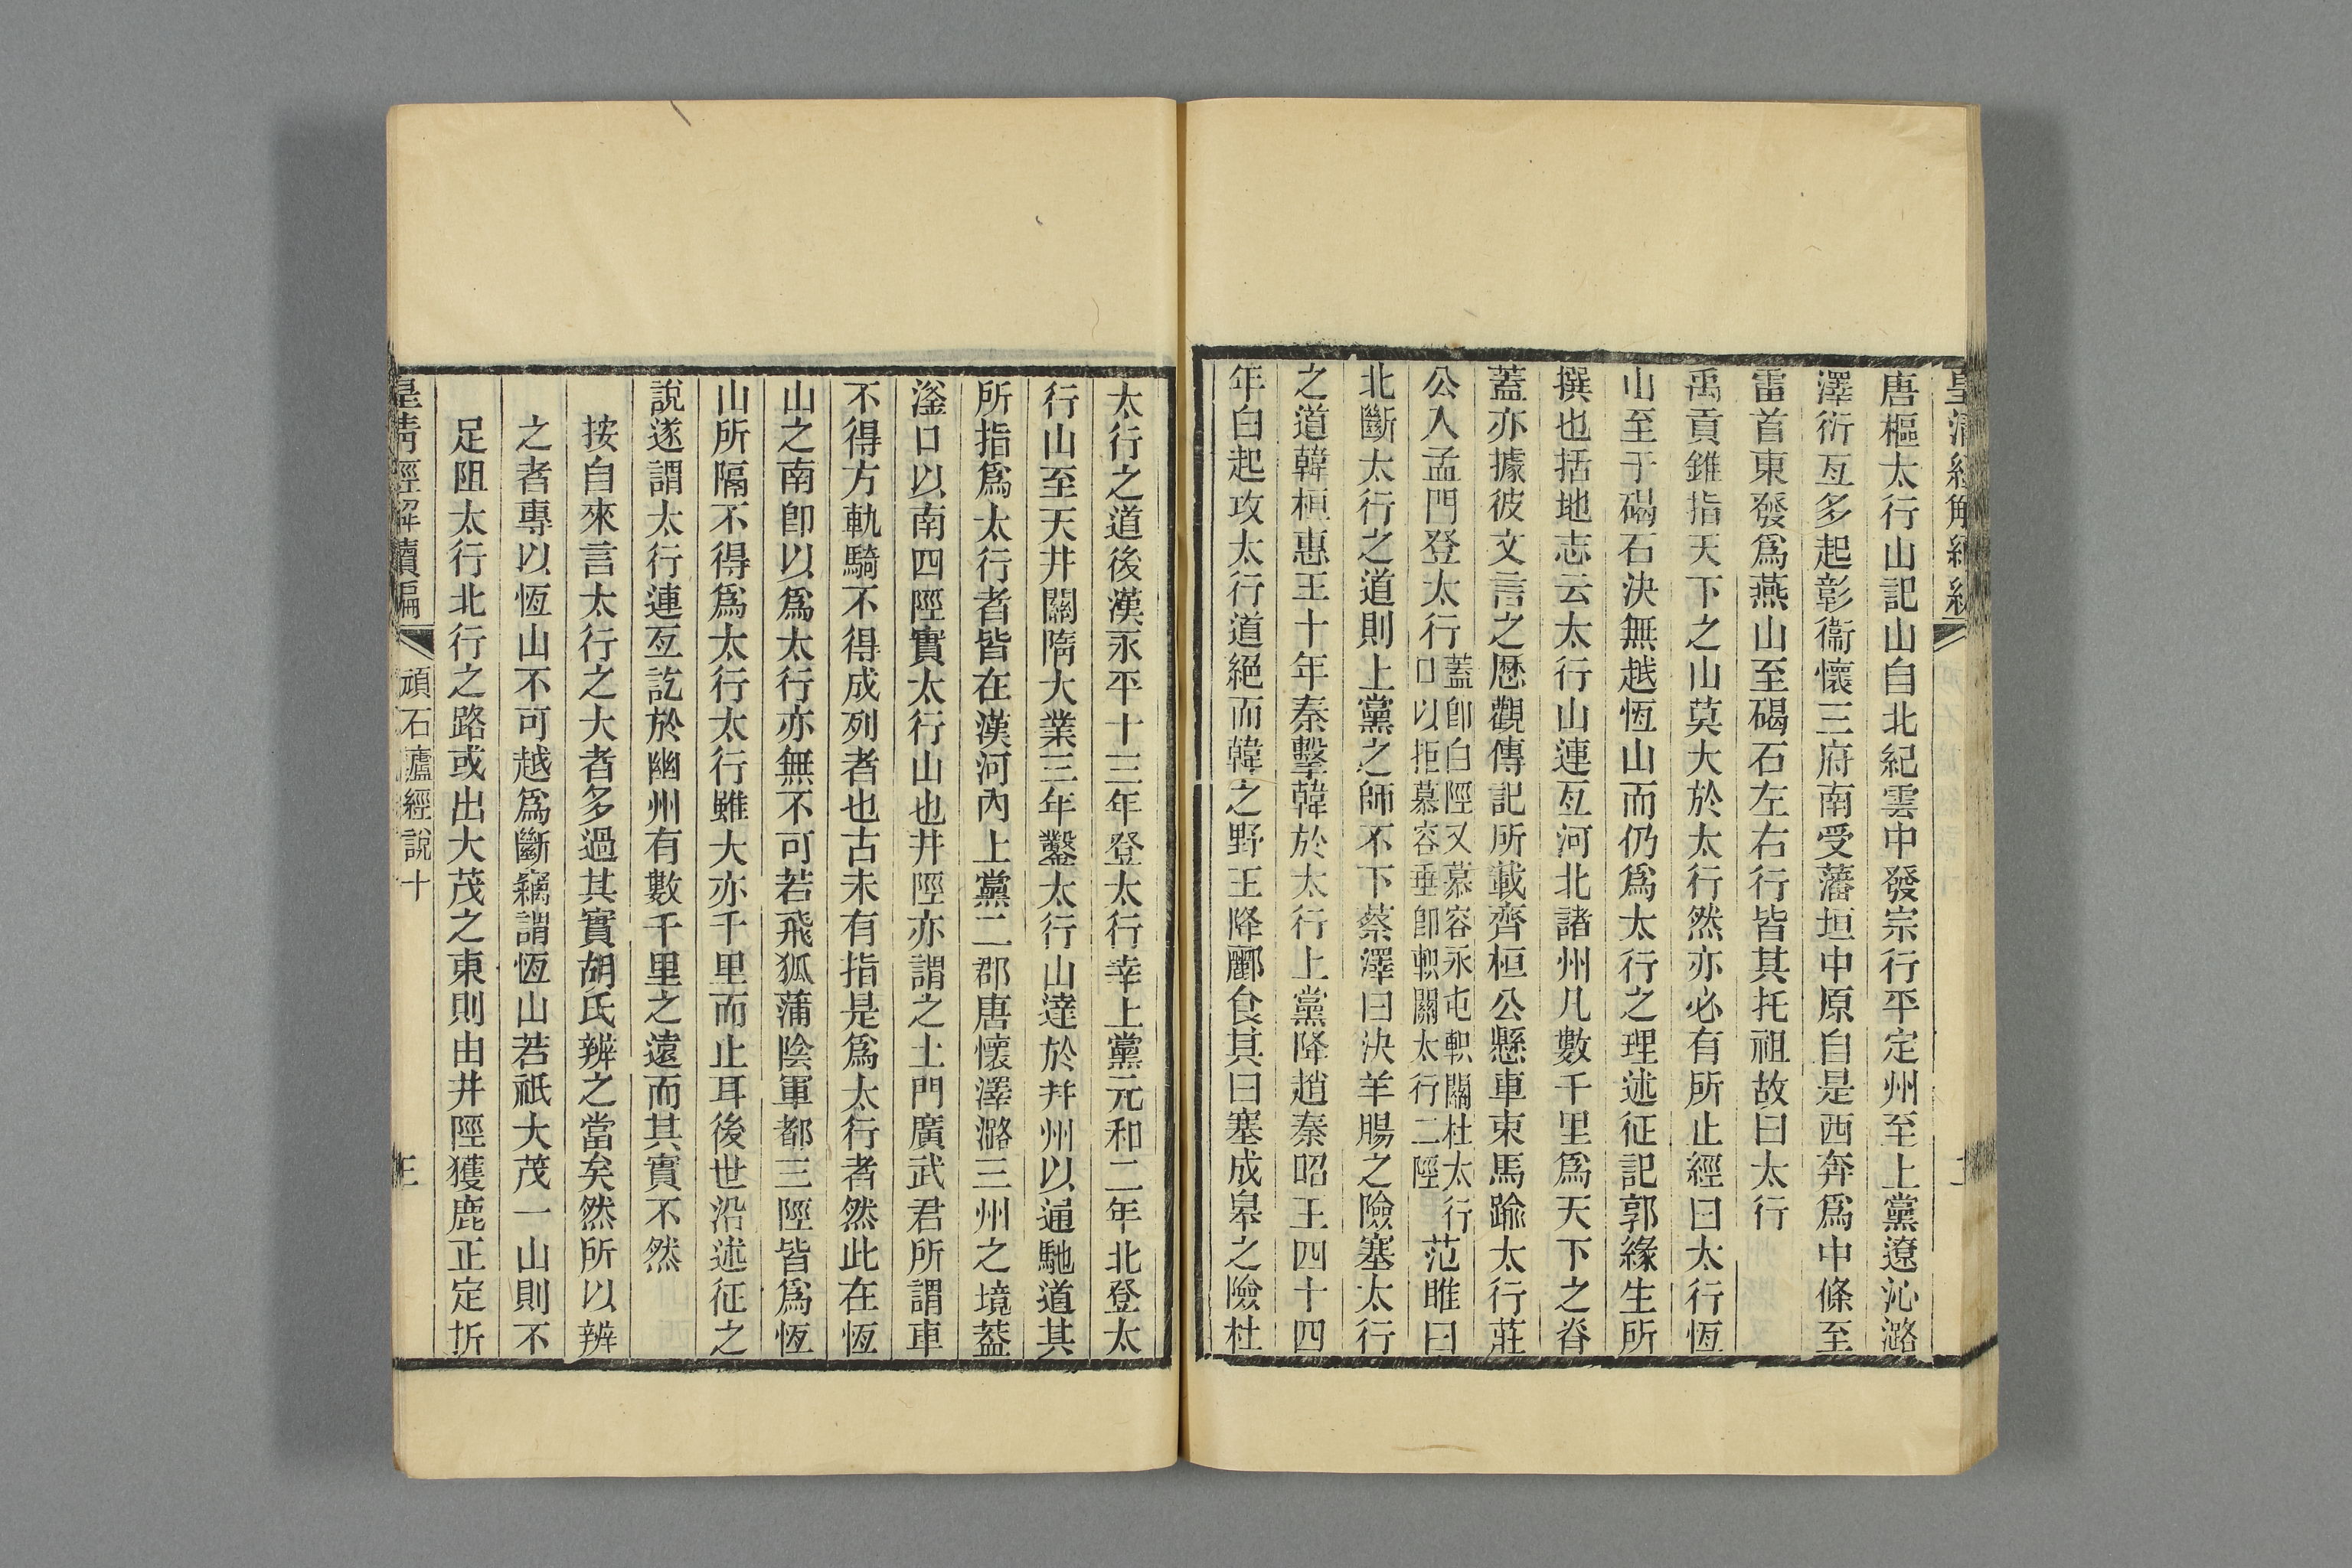 唐樞太行山記山自北紀雲中發宗行平定州至上黨遼沁潞
澤衍亙多起彰衞懷三府南受藩垣中原自是西奔爲中條至
雷首東發爲燕山至碣石左右行皆其托祖故曰太行
禹貢錐指天下之山莫大於太行然亦必有所止經曰太行恆
山至于碣石決無越恆山而仍爲太行之理述征記郭緣生所
撰也括地志云太行山連亙河北諸州凡數千里爲天下之脊
蓋亦據彼文言之歷觀傳記所載齊桓公懸車束馬踰太行莊
公入孟門登太行蓋卽白陘又慕容永屯軹關杜太行口以拒慕容垂卽軹關太行二陘范睢曰
北斷太行之道則上黨之師不下蔡澤曰決羊腸之險塞太行
之道韓桓惠王十年秦擊韓於太行上黨降趙秦昭王四十四
年白起攻太行道絕而韓之野王降酈食其曰塞成皋之險杜
太行之道後漢永平十三年登太行幸上黨元和二年北登太
行山至天井關隋大業三年鑿太行山達於幷州以通馳道其
所指爲太行者皆在漢河內上黨二郡唐懷澤潞三州之境蓋
滏口以南四陘實太行山也井陘亦謂之土門廣武君所謂車
不得方軌騎不得成列者也古未有指是爲太行者然此在恆
山之南卽以爲太行亦無不可若飛狐蒲陰軍都三陘皆爲恆
山所隔不得爲太行太行雖大亦千里而止耳後世沿述征之
說遂謂太行連亙訖於幽州有數千里之遠而其實不然
按自來言太行之大者多過其實胡氏辨之當矣然所以辨
之者專以恆山不可越爲斷竊謂恆山若祇大茂一山則不
足阻太行北行之路或出大茂之東則由井陘獲鹿正定折
皇清經解續編 頑石廬經說十 三